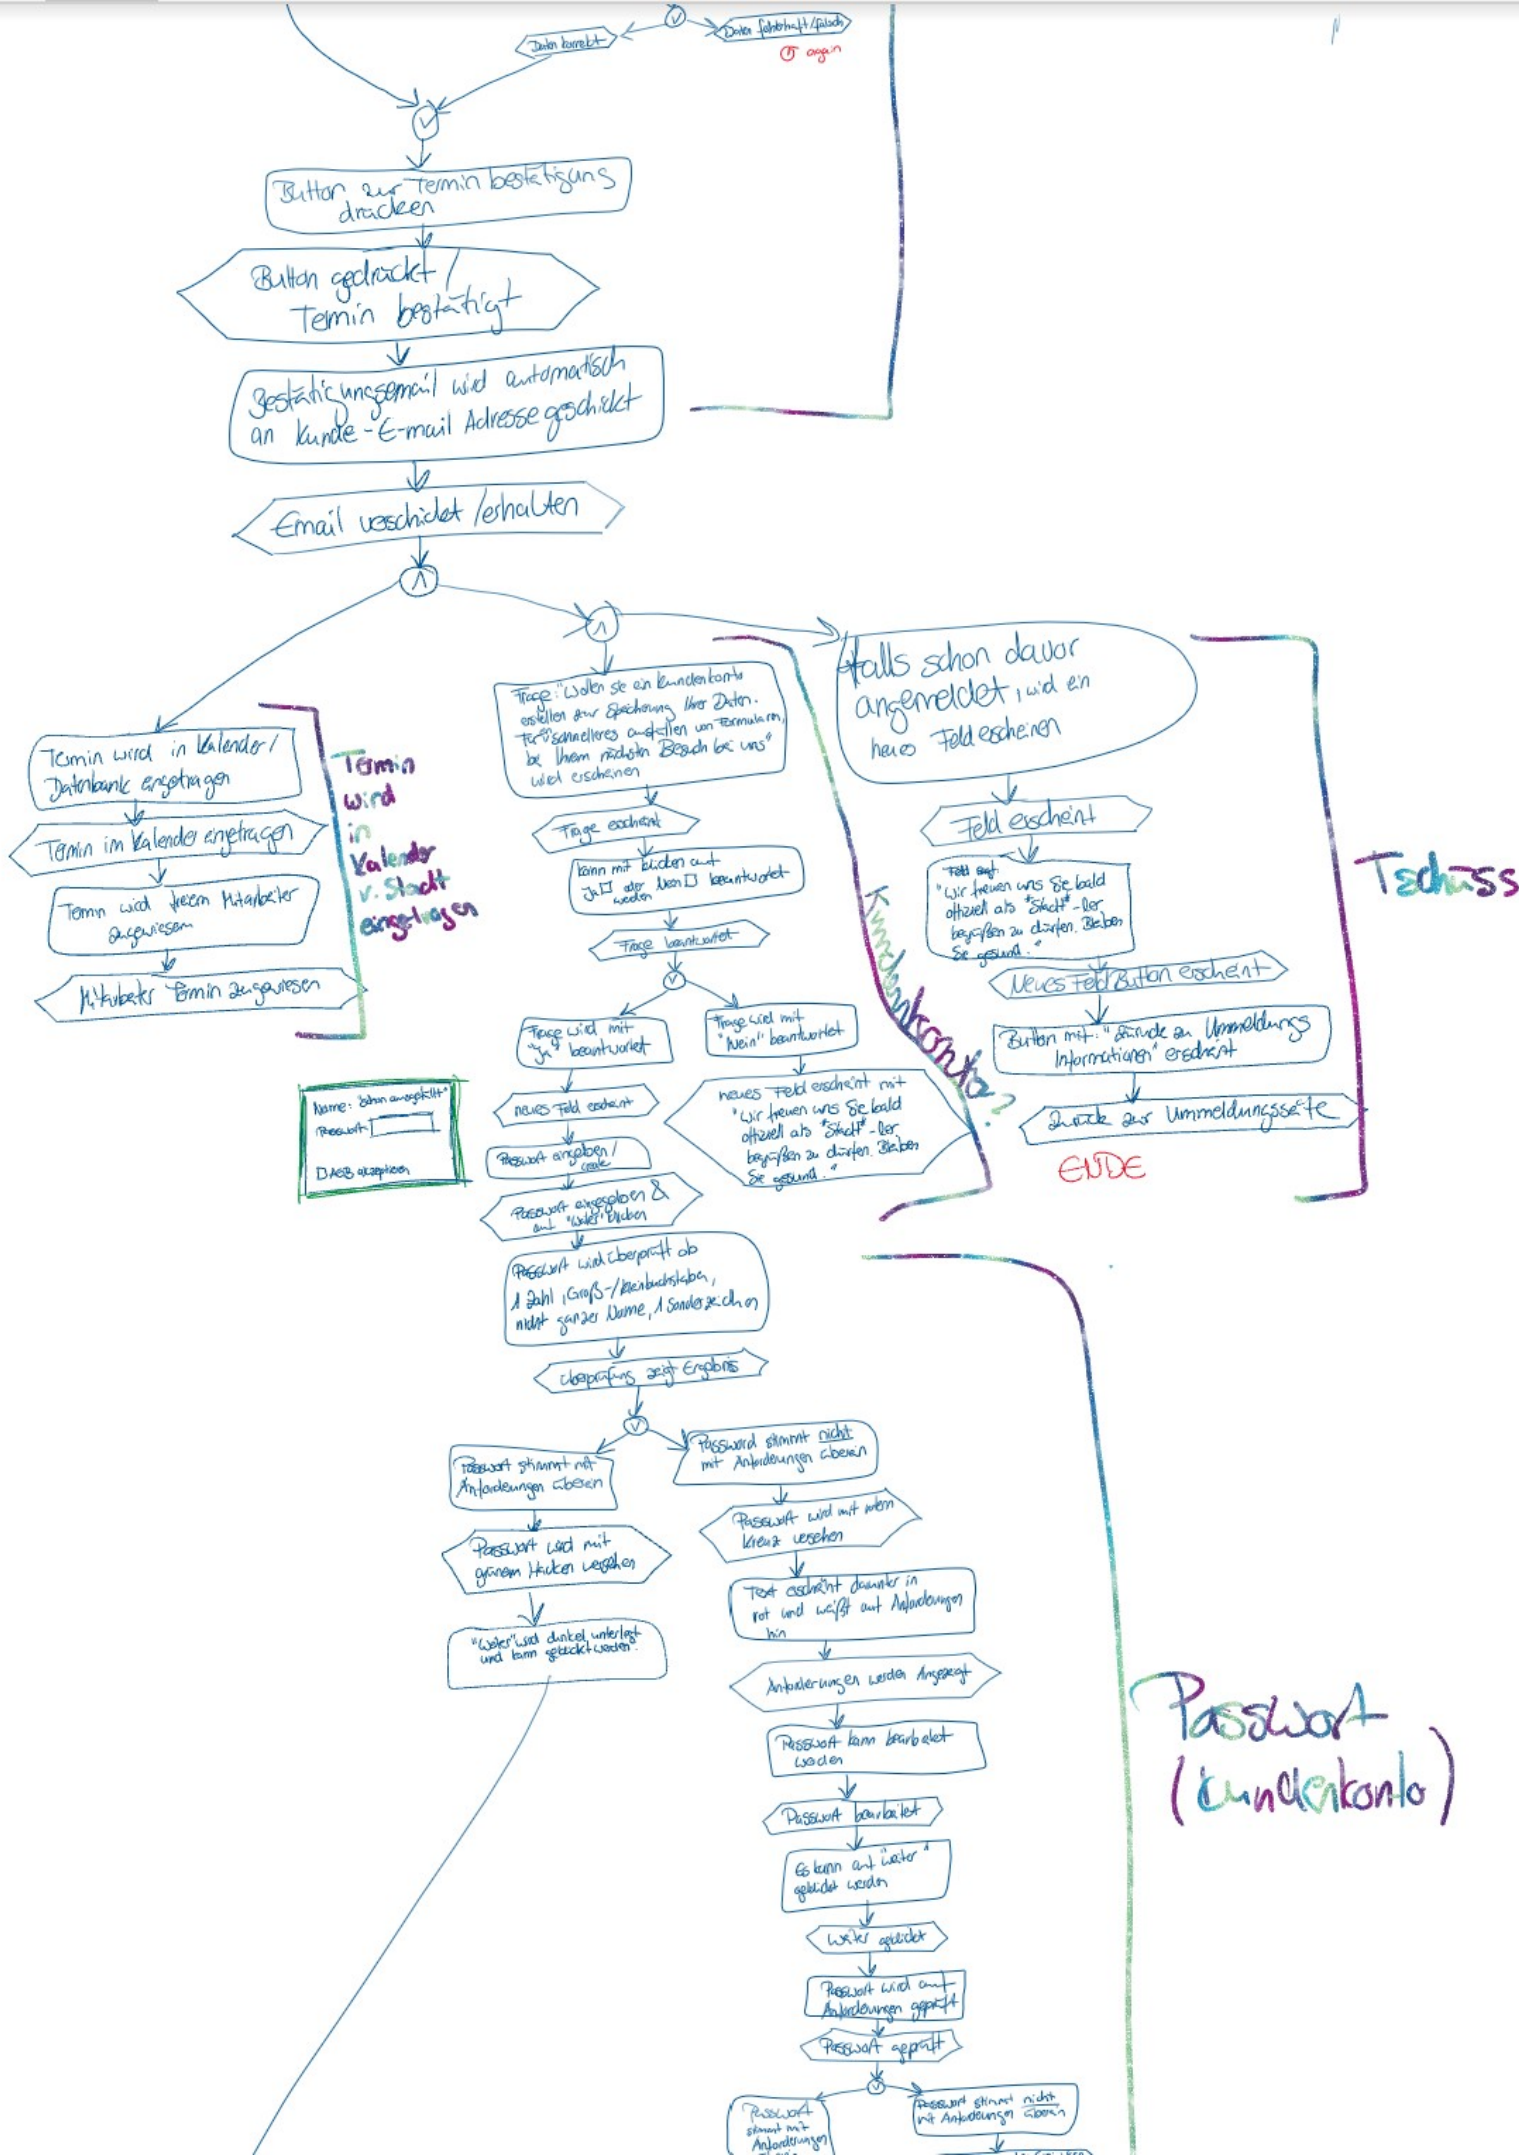 Daten korrekt
Daten fehlerhaft/falsch
again
Button zur Terminbestätigung
drücken
Button gedrückt /
Termin bestätigt
Bestätigungsemail wird automatisch
an Kunde-E-mail Adresse geschickt
Email verschickt /erhalten
Termin wird in Kalender/
Datenbank eingetragen
Termin im Kalender eingetragen
Termin wird freiem Mitarbeiter
zugewiesen
Mitarbeiter Termin zugewiesen
Termin
wird
in
Kalender
v. Stadt
eingetragen
Frage: "Wollen sie ein Kundenkonto
erstellen zur Speicherung Ihrer Daten.
Für schnelleres ausfüllen von Formularen,
bei Ihrem nächsten Besuch bei uns"
wird erscheinen
Frage erscheint
kann mit klicken auf
Ja☐ oder Nein☐ beantwortet
werden
Frage beantwortet
Frage wird mit
"Ja" beantwortet
Frage wird mit
"Nein" beantwortet
neues Feld erscheint
neues Feld erscheint mit
"Wir freuen uns Sie bald
offiziell als "Stadt"-ler
begrüßen zu dürfen. Bleiben
Sie gesund."
Kundenkonto?
falls schon davor
angemeldet, wird ein
neues Feld erscheinen
Feld erscheint
Feld auf
"Wir freuen uns Sie bald
offiziell als "Stadt"-ler
begrüßen zu dürfen. Bleiben
Sie gesund."
Neues Feld Button erscheint
Button mit: "Zurück zu Ummeldungs
Informationen" erscheint
Zurück zur Ummeldungsseite
ENDE
Tschüss
Name: "Schon ausgefüllt"
Passwort:
☐ AGB akzeptieren
Passwort eingeben/
create
Passwort eingegeben &
auf "Weiter" klicken
Passwort wird überprüft ob
1 Zahl, Groß-/Kleinbuchstaben,
nicht ganzer Name, 1 Sonderzeichen
überprüfung zeigt Ergebnis
Passwort stimmt mit
Anforderungen überein
Passwort wird mit
grünem Hacken versehen
"Weiter" wird dunkel unterlegt
und kann geklickt werden.
Password stimmt nicht
mit Anforderungen überein
Passwort wird mit rotem
Kreuz versehen
Text erscheint darunter in
rot und weißt auf Anforderungen
hin
Anforderungen werden Angezeigt
Passwort kann bearbeitet
werden
Passwort bearbeitet
Es kann auf "weiter"
geklickt werden
Weiter geklickt
Passwort wird auf
Anforderungen geprüft
Passwort geprüft
Passwort
stimmt mit
Anforderungen
Passwort stimmt nicht
mit Anforderungen überein
Passwort
(Kundenkonto)